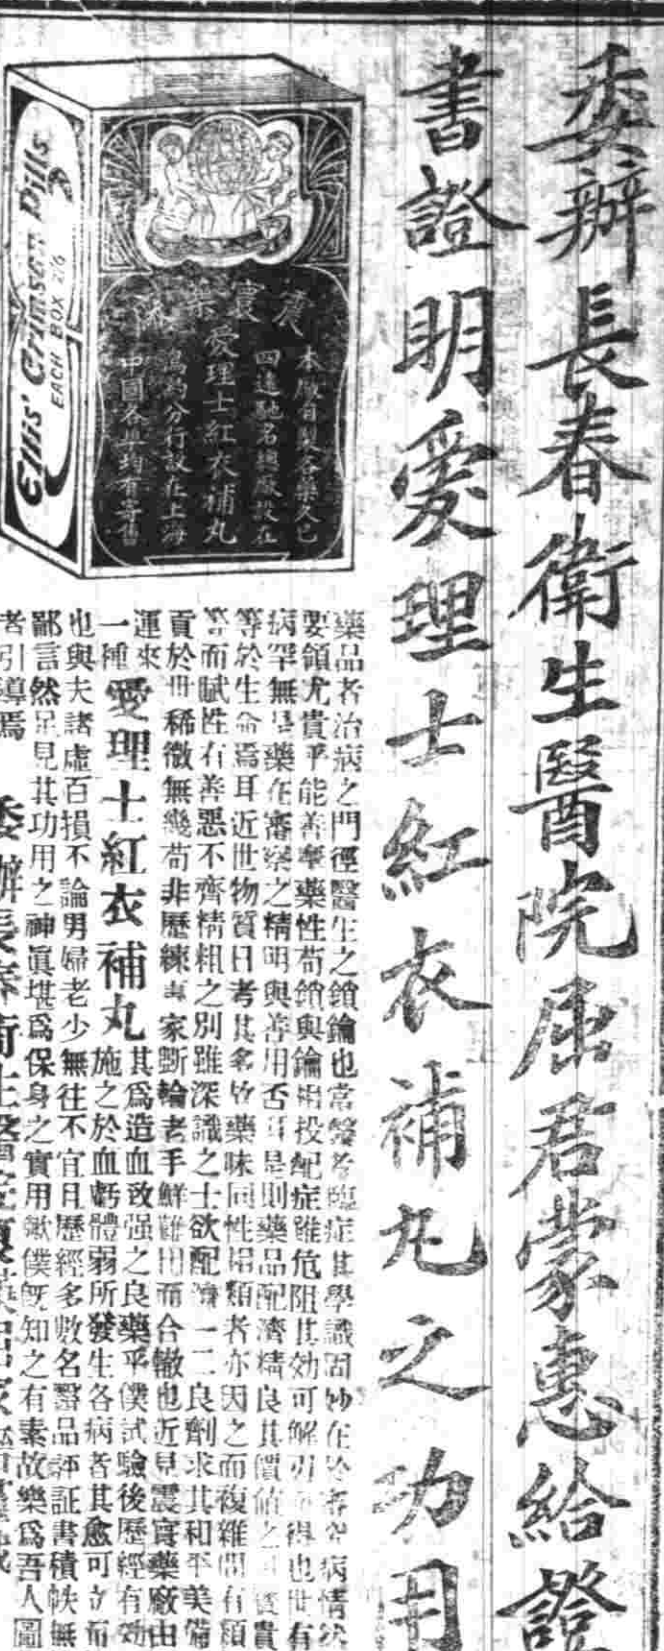 委辦長春衛生醫院屈君蒙惠給證
書證明愛理士紅衣補丸之功用
Ellis' Crimson Pills
EACH BOX 2/6
本廠自製各藥久已
四遠馳名總廠設在
愛理士紅衣補丸
分行設在上海
中國各埠均有寄售
藥品者治病之門徑醫生之鎖鑰也常醫者臨症其學識固妙在病情
要領尤貴乎能善藥性苟鎖與鑰投配症雖危阻其効可解得也世有
病罕無藥在審察之精明與善用否耳是則藥品配濟精良其價值之貴
等於生命焉耳近世物質日考其藥味同性類者亦因之而複雜間有類
等而賦性有善惡不齊精粗之別雖深識之士欲配濟一二良劑求其和平美備
貢於世稀微無幾苟非歷練專家斵輪老手鮮難出而合轍也近見震寰藥廠由
運來
一種愛理士紅衣補丸其爲造血致强之良藥乎僕試驗後歷經有効
施之於血虧體弱所發生各病者其愈可立而
也與夫諸虛百損不論男婦老少無往不宜且歷經多數名醫品評証書積帙無
鄙言然足見其功用之神眞堪爲保身之實用歟僕旣知之有素故樂爲吾人圖
者引導焉
委辦長春衛生醫院